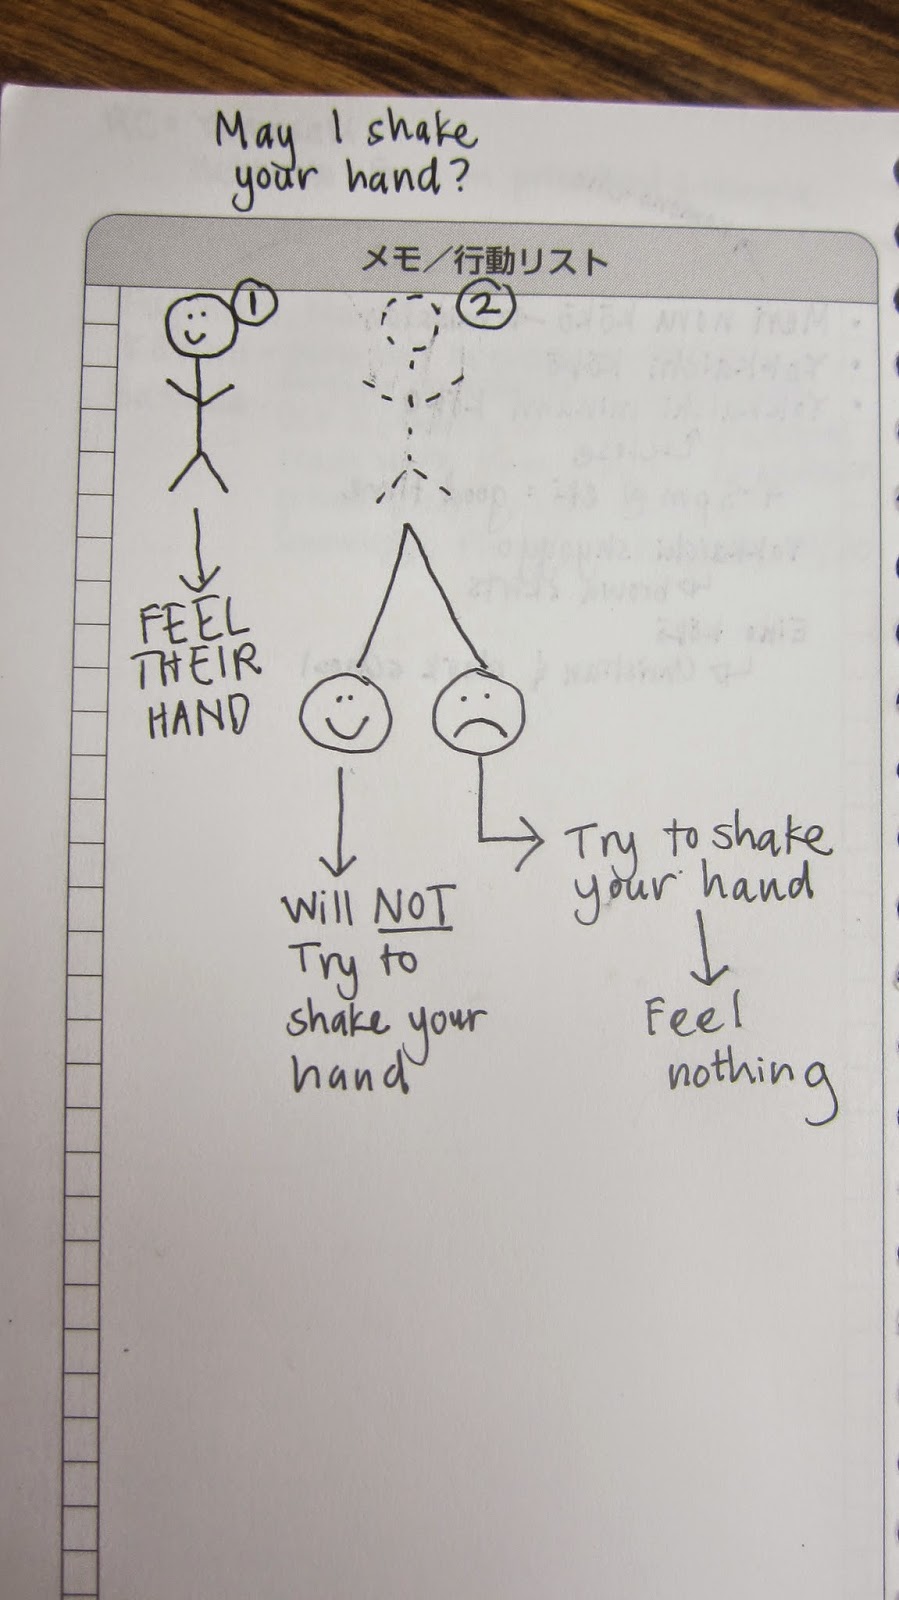 May I shake
your hand?
メモ／行動リスト
1
2
FEEL
THEIR
HAND
Will NOT
Try to
shake your
hand
Try to shake
your hand
Feel
nothing